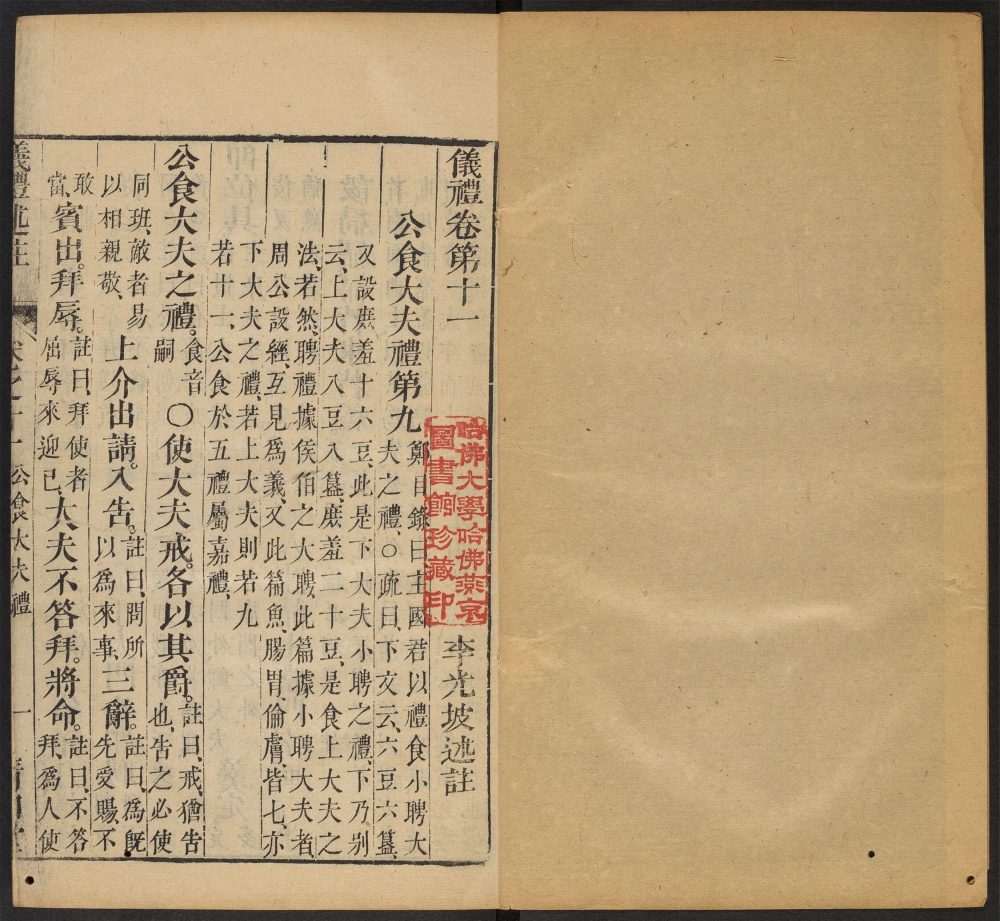 儀禮卷第十一
李光坡述註
哈佛大學哈佛燕京
圖書館珍藏印
公食大夫禮第九
鄭目錄曰主國君以禮食小聘大
夫之禮○疏曰下文云六豆六簋
又設庶羞十六豆此是下大夫小聘之禮下乃别
云上大夫八豆八簋庶羞二十豆是食上大夫之
法若然聘禮據侯伯之大聘此篇據小聘大夫者
周公設經互見為義又此篇魚腸胃倫膚皆七亦
下大夫之禮若上大夫則若九
若十一公食於五禮屬嘉禮
公食大夫之禮
食音
嗣
○使大夫戒各以其爵
註曰戒猶告
也告之必使
同班敵者易
以相親敬
上介出請入告
註曰問所
以為來事
三辭
註曰為旣
先受賜不
敢
當
賓出拜辱
註曰拜使者
屈辱來迎已
大夫不答拜將命
註曰不答
拜為人使
儀禮述註
卷之十一 公食大夫禮
一